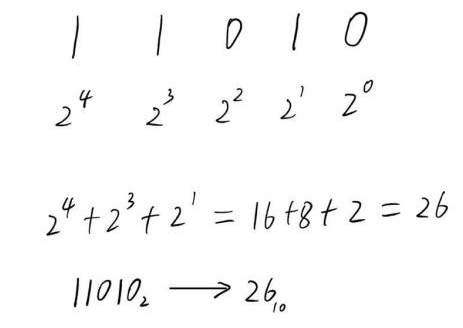 1 1 0 1 0
2⁴ 2³ 2² 2¹ 2⁰
2⁴+2³+2¹ = 16+8+2 = 26
11010₂ → 26₁₀